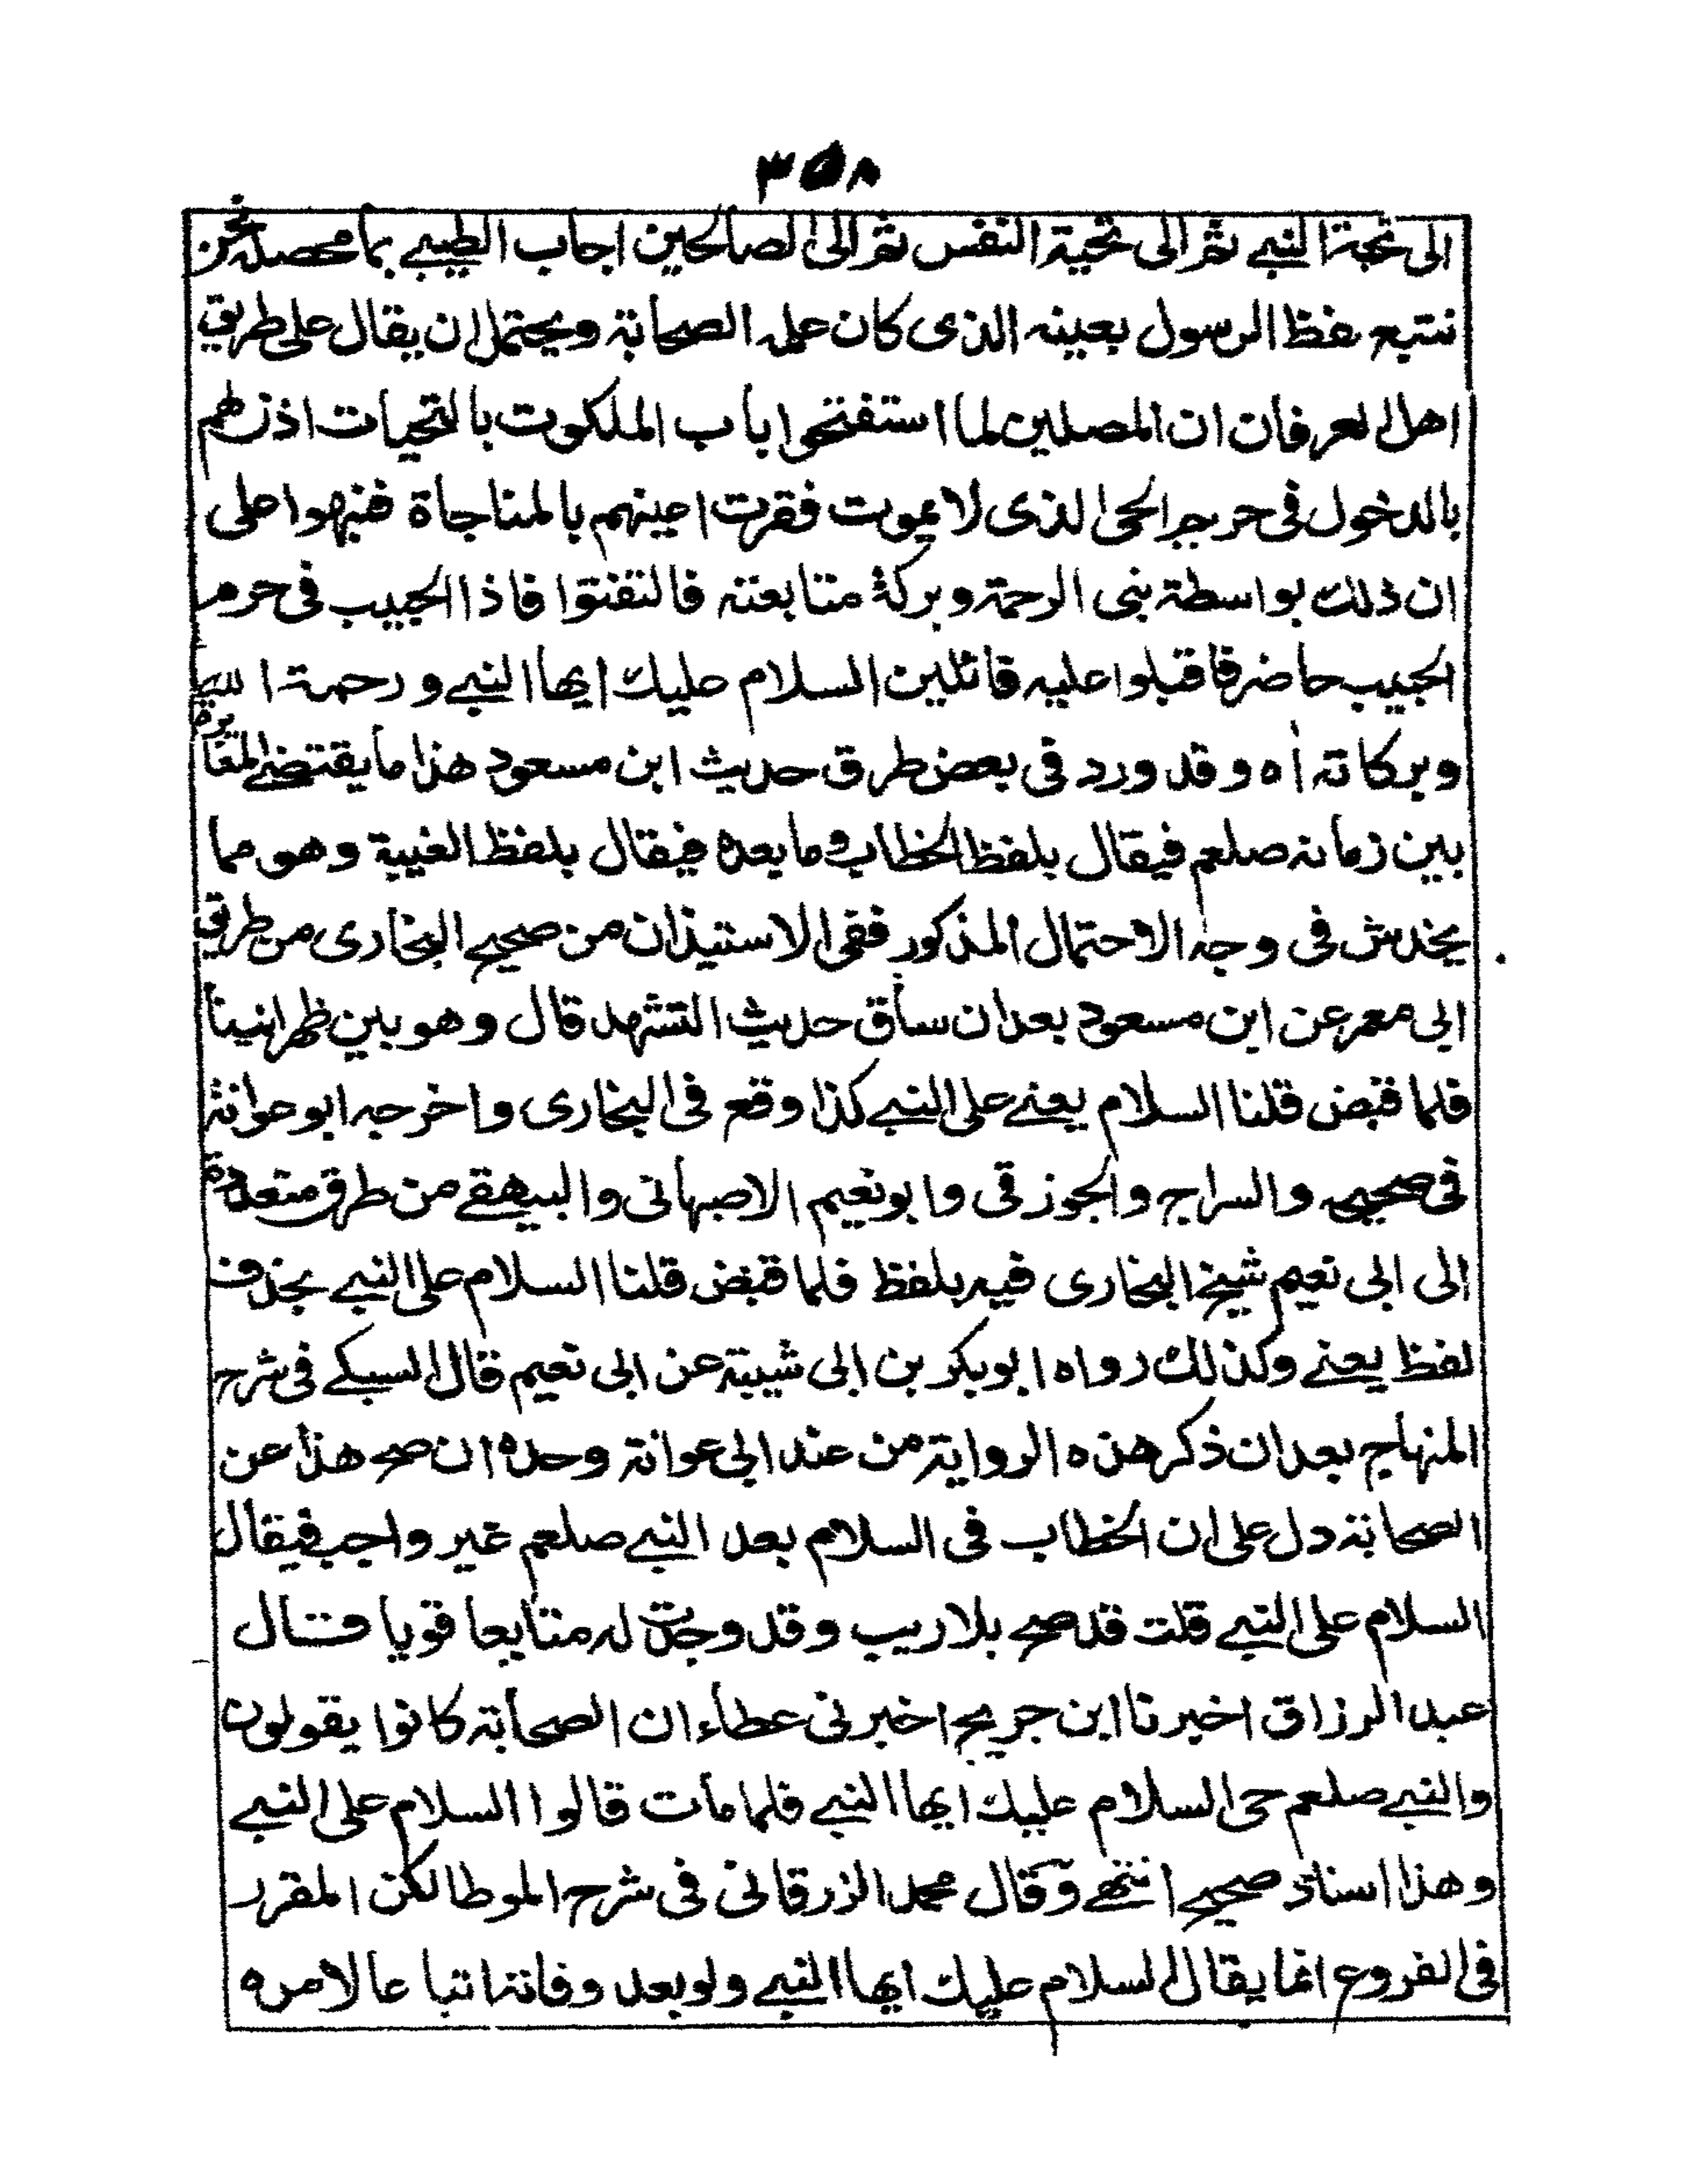 ٣٥٨
الى تحية النبي ثم الى تحية النفس ثم الى الصالحين اجاب الطيبي بما محصله نحن
نتبع لفظ الرسول بعينه الذى كان علمه الصحابة ويحتمل ان يقال على طريق
اهل العرفان ان المصلين لما استفتحوا باب الملكوت بالتحيات اذن لهم
بالدخول فى حريم الحى الذى لا يموت فقرت اعينهم بالمناجاة فنبهوا على
ان ذلك بواسطة نبى الرحمة وبركة متابعته فالتفتوا فاذا الحبيب فى حرم
الحبيب حاضر فاقبلوا عليه قائلين السلام عليك ايها النبي ورحمة الله
وبركاته اه وقد ورد فى بعض طرق حديث ابن مسعود هذا ما يقتضي المغايرة
بين زمانه صلعم فيقال بلفظ الخطاب وما بعده فيقال بلفظ الغيبة وهو مما
يخدش فى وجه الاحتمال المذكور ففى الاستيذان من صحيح البخارى من طريق
ابى معمر عن ابن مسعود بعد ان ساق حديث التشهد قال وهو بين ظهرانينا
فلما قبض قلنا السلام يعني على النبي كذا وقع فى البخارى واخرجه ابو عوانة
فى صحيحه والسراج والجوزقى وابو نعيم الاصبهانى والبيهقي من طرق متعددة
الى ابى نعيم شيخ البخارى فيه بلفظ فلما قبض قلنا السلام على النبي بحذف
لفظ يعني وكذلك رواه ابو بكر بن ابى شيبة عن ابى نعيم قال السبكي فى شرح
المنهاج بعد ان ذكر هذه الرواية من عند ابى عوانة وحده ان صح هذا عن
الصحابة دل على ان الخطاب فى السلام بعد النبي صلعم غير واجب فيقال
السلام على النبي قلت قد صح بلا ريب وقد وجدت له متابعا قويا قال
عبد الرزاق اخبرنا ابن جريج اخبرنى عطاء ان الصحابة كانوا يقولون
والنبي صلعم حى السلام عليك ايها النبي فلما مات قالوا السلام على النبي
وهذا اسناد صحيح انتهي وقال محمد الزرقانى فى شرح الموطا لكن المقرر
فى الفروع انما يقال السلام عليك ايها النبي ولو بعد وفاته اتباعا لامره